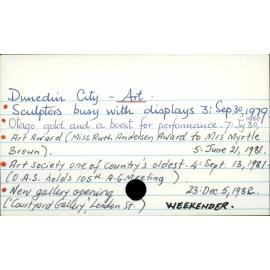 Dunedin City - Art.
• Sculptors busy with displays 3: Sep.30,1979
Otago gold and a boost for performance. 7: Jy 30, 1980
• Art Award (Miss Ruth Andersen Award to Mrs Myrtle
Brown). 5: June 21, 1981.
• Art society one of country's oldest. 4: Sept. 13, 1981.
(O.A.S. holds 105th A.G. Meeting)
• New gallery opening 23: Dec 5, 1982.
('Courtyard Gallery', London St.) WEEKENDER.